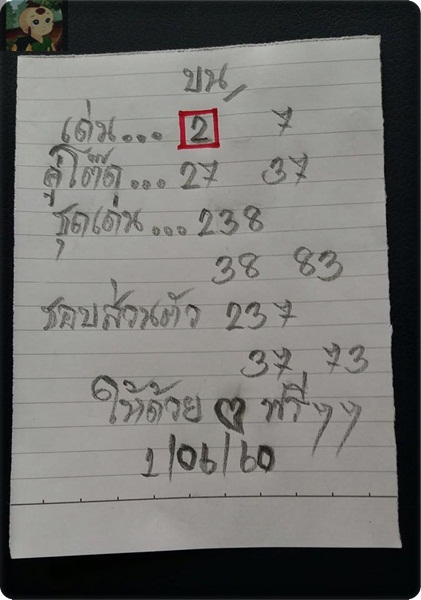 บน
เด่น... 2 7
คู่โต๊ด... 27 37
ชุดเด่น... 238
38 83
ชอบส่วนตัว 237
37 73
ให้ด้วย ฟรีๆๆ
1/06/60